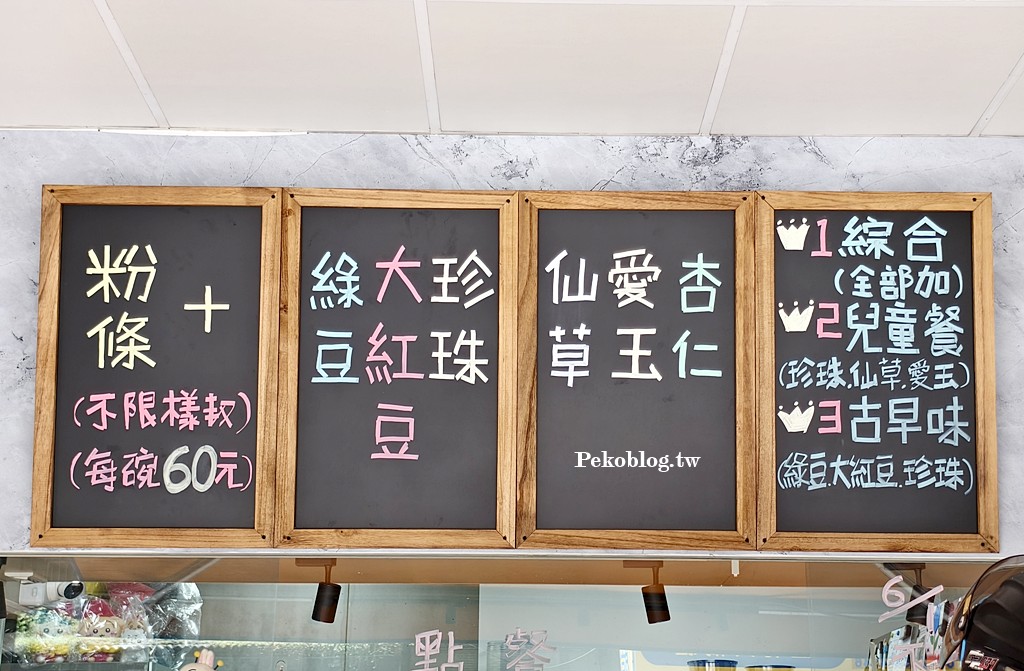 粉條 +
(不限樣數)
(每碗60元)
綠豆
大紅豆
珍珠
仙草
愛玉
杏仁
1.綜合
(全部加)
2兒童餐
(珍珠.仙草.愛玉)
3古早味
(綠豆.大紅豆.珍珠)
Pekoblog.tw
點餐
6/